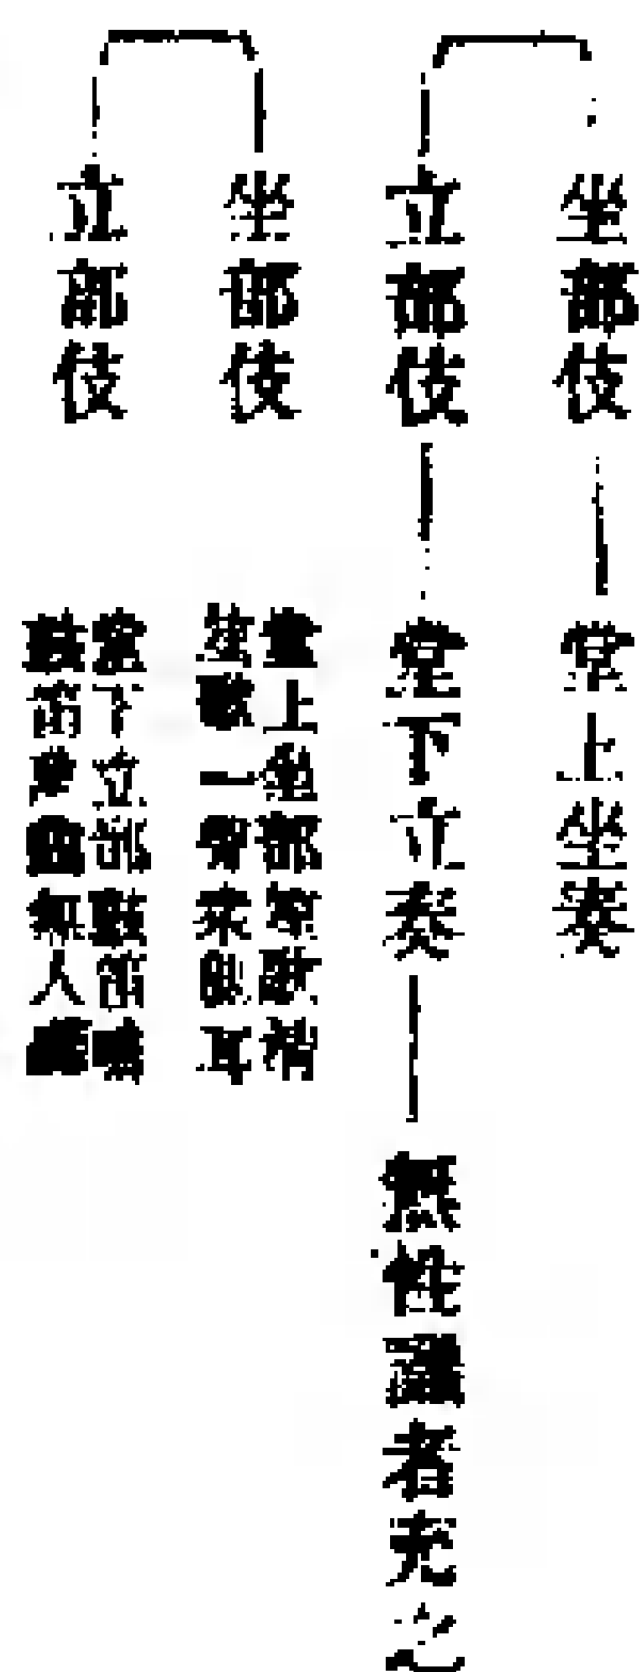 坐部伎 堂上坐奏
立部伎 堂下立奏 無性靈者充之
坐部伎
堂上坐部笙歌清
笙歌一聲衆側耳
立部伎
堂下立部鼓笛鳴
鼓笛萬曲無人聽